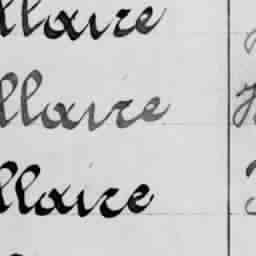 llaire
llaire
llaire